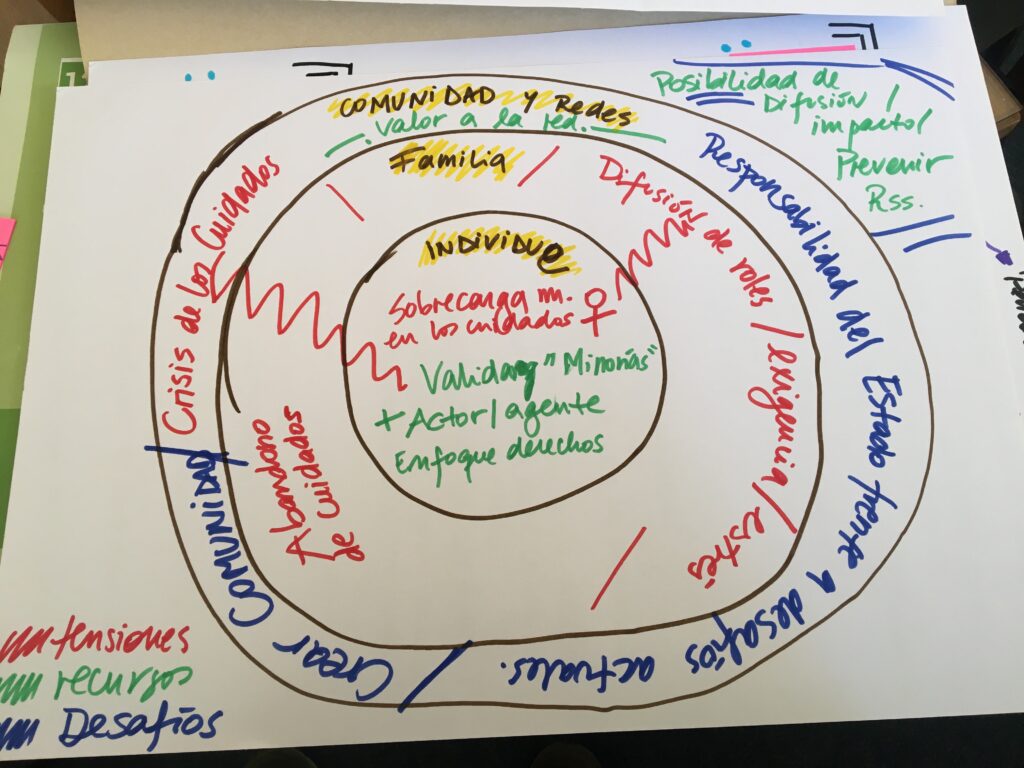 COMUNIDAD y Redes
valor a la red.
Familia
INDIVIDUE
Sobrecarga m.
en los cuidados ♀
Validar "Minorías"
+ Actor/agente
Enfoque derechos
Crisis de los Cuidados
Abandono
de cuidados
Difusión de roles / exigencia / estrés
Responsabilidad del Estado frente a desafíos actuales.
Crear COMUNIDAD
Posibilidad de
Difusión /
impacto/
Prevenir
Rss.
tensiones
recursos
Desafíos